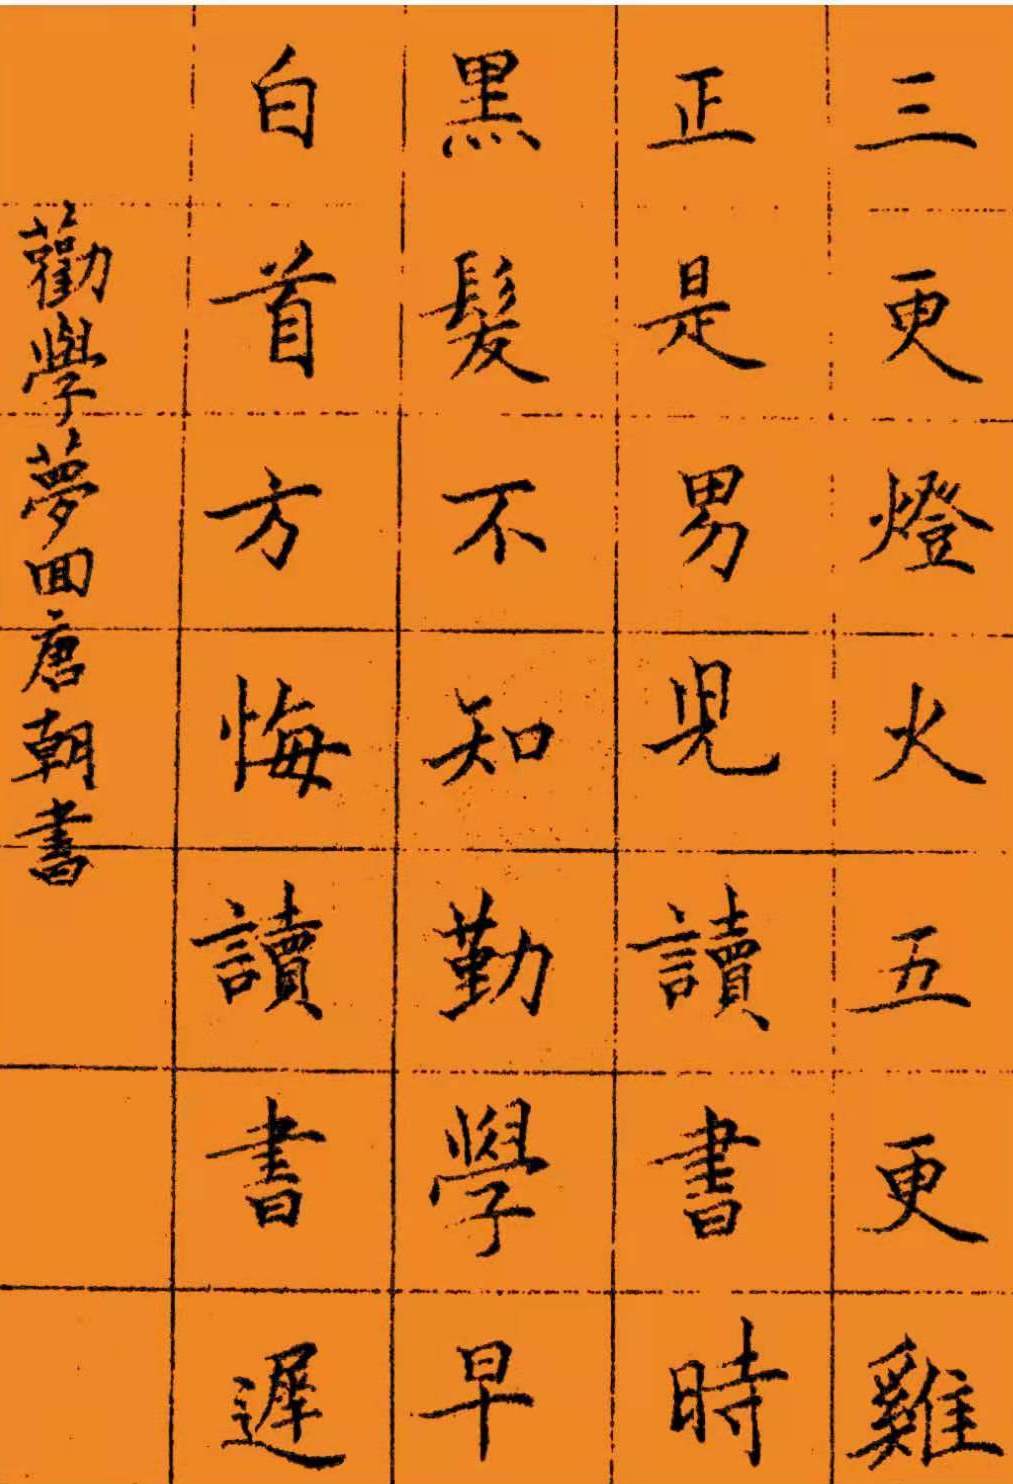 三更燈火五更雞
正是男兒讀書時
黑髮不知勤學早
白首方悔讀書遲
勸學夢回唐朝書